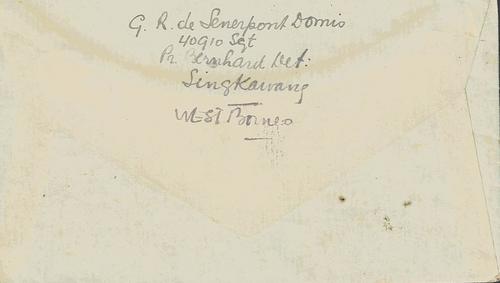 G. R. de Senerpont Domis
40910 Sgt
Pr. Bernhard Det:
Singkawang
West Borneo